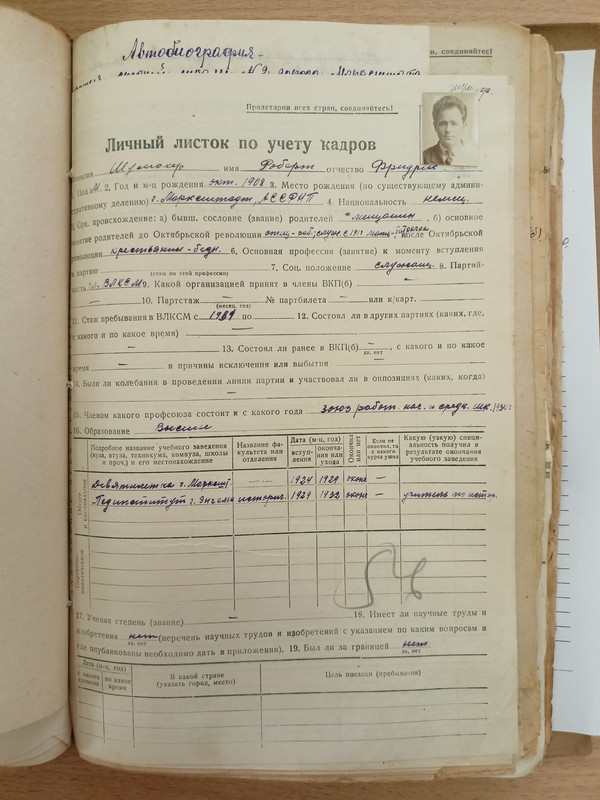 Автобиография-
н, соединяйтесь!
№ 9, города Марксштадта
Пролетарии всех стран, соединяйтесь!
Личный листок по учету кадров
Шумахер имя Роберт отчество Фридрих
Пол М. 2. Год и м-ц рождения окт. 1908 3. Место рождения (по существующему админи-
стративному делению) г. Марксштадт, АССРНП 4. Национальность немец.
5. Соц. происхождение: а) бывш. сословие (звание) родителей мещанин, б) основное
занятие родителей до Октябрьской революции после Октябрьской
революции крестьянин-бедн. 6. Основная профессия (занятие) к моменту вступления
в партию — 7. Соц. положение служащ. 8. Партий-
(стаж по этой профессии)
ность чл. ВЛКСМ 9. Какой организацией принят в члены ВКП(б) —
— 10. Партстаж — № партбилета — или к/карт.
(месяц, год)
11. Стаж пребывания в ВЛКСМ с 1929 по 12. Состоял ли в других партиях (каких, где,
с какого и по какое время) —
— 13. Состоял ли ранее в ВКП(б) —, с какого и по какое
да, нет
время — и причины исключения или выбытия —
14. Были ли колебания в проведении линии партии и участвовал ли в оппозициях (каких, когда)
—
15. Членом какого профсоюза состоит и с какого года союз работ нач. и средн. шк.
16. Образование Высшее
Подробное название учебного заведения (вуза, втуза, техникума, комвуза, школы и проч.) и его местонахождение
Название факультета или отделения
Дата (м-ц, год)
вступления
окончания или ухода
Окончил или нет
Если не окончил, то с какого курса ушел
Какую (узкую) специальность получил в результате окончания учебного заведения
Девятилетка г. Маркшт. — 1924 1929 окон —
Пединститут г. Энгельс историч. 1929 1932 окон — учитель по истор.
17. Ученая степень (звание) — 18. Имеет ли научные труды и
изобретения нет (перечень научных трудов и изобретений с указанием по каким вопросам и
да, нет
где опубликованы необходимо дать в приложении). 19. Был ли за границей нет
да, нет
Дата (м-ц, год)
с какого времени
по какое время
В какой стране
(указать город, место)
Цель поездки (пребывания)